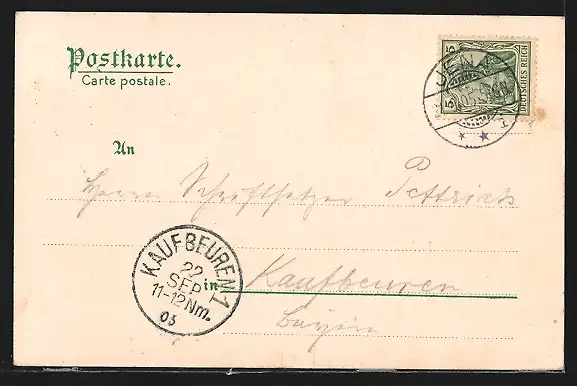 Postkarte.
Carte postale.
5 5
DEUTSCHES REICH
JENA
An
Herrn Schriftsetzer Pettrich
KAUFBEUREN 1
22
SEP
11-12Nm.
05
in Kaufbeuren
Bayern